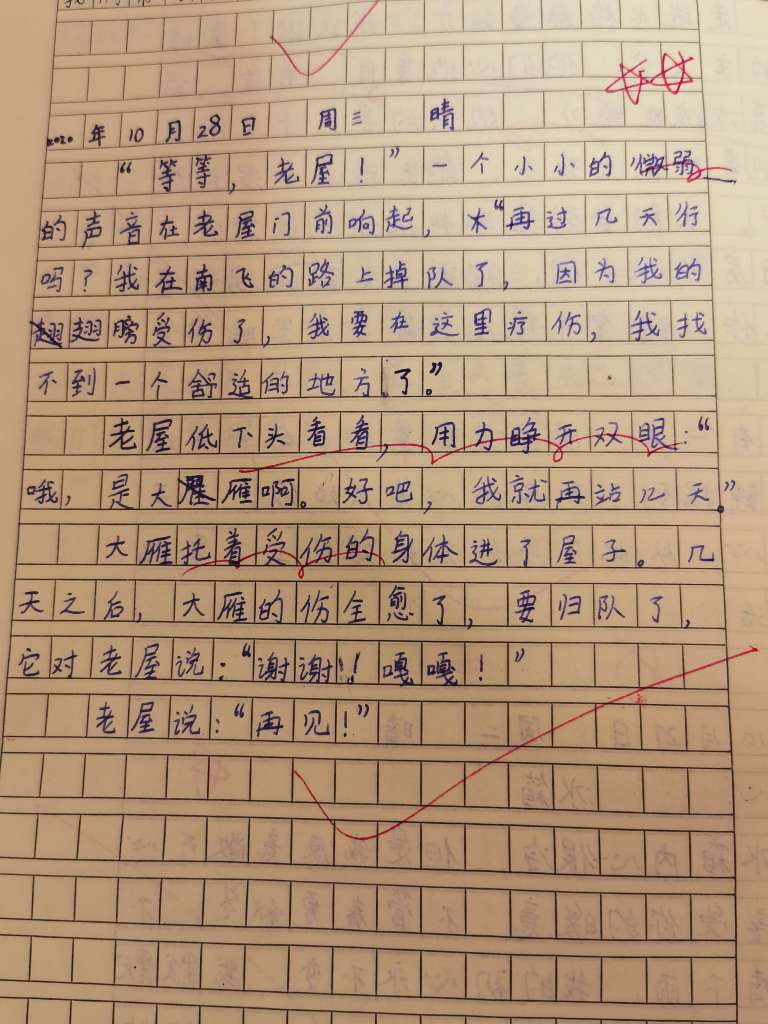 2020年10月28日 周三 晴
“等等，老屋！”一个小小的微弱
的声音在老屋门前响起，木“再过几天行
吗？我在南飞的路上掉队了，因为我的
翅膀受伤了，我要在这里疗伤，我找
不到一个舒适的地方了。”
老屋低下头看看，用力睁开双眼：“
哦，是大雁啊。好吧，我就再站几天。”
大雁托着受伤的身体进了屋子。几
天之后，大雁的伤全愈了，要归队了，
它对老屋说：“谢谢！！嘎嘎！”
老屋说：“再见！”